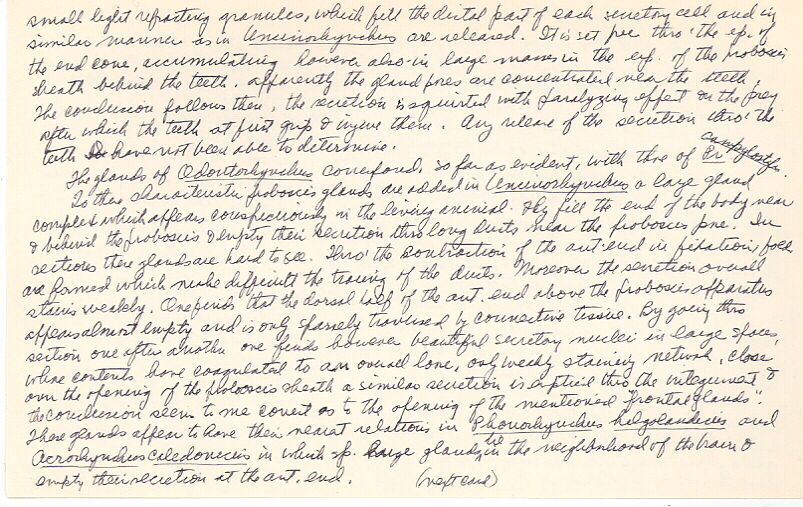 small light refracting granules, which fill the distal part of each secretory cell and in
similar manner as in Uncinorhynchus are released. It is set free thro' the ep. of
the end cone, accumulating however also in large masses in the ep. of the proboscis
sheath behind the teeth. Apparently the gland pores are concentrated near the teeth.
The conclusion follows then, the secretion is squirted with paralyzing effect on the prey
after which the teeth at first grip & injure them. Any release of the secretion thro' the
teeth I have not been able to determine.
The glands of Odontorhynchus correspond, so far as evident, with those of Br.
To these characteristic proboscis glands are added in Uncinorhynchus a large gland
complex which appears conspicuously in the living animal. They fill the end of the body near
& behind the proboscis & empty their secretion thro long ducts near the proboscis pore. In
sections these glands are hard to see. Thro' the contraction of the ant. end in fixation, folds
are formed which make difficult the tracing of the ducts. Moreover the secretion overall
stains weakly. One finds that the dorsal half of the ant. end above the proboscis apparatus
appears almost empty and is only sparsely traversed by connective tissue. By going thro
section one after another one finds however beautiful secretory nuclei in large spaces,
whose contents have coagulated to an overall lone, only weakly staining network. Close
over the opening of the proboscis sheath a similar secretion is emptied thro the integument &
the conclusion seems to me correct as to the opening of the mentioned frontal glands".
These glands appear to have their nearest relations in Phonorhynchus helgolandicus and
Acrorhynchus caledonicus in which sp. large glands in the neighborhood of the brain &
empty their secretion at the ant. end. (next card)